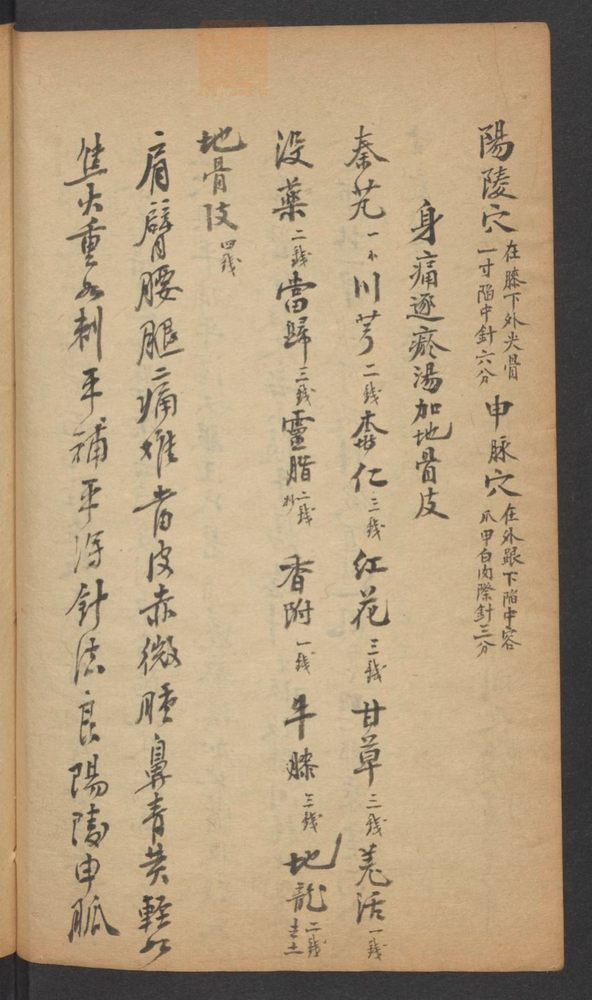 陽陵穴 在膝下外尖骨一寸陷中針六分 申脉穴 在外踝下陷中容爪甲白肉際針三分
身痛逐瘀湯加地骨皮
秦艽一小 川芎二錢 桃仁三錢 红花三錢 甘草二錢 羌活一錢
没藥二錢 當歸三錢 靈脂二錢炒 香附一錢 牛膝三錢 地龍二錢去土
地骨皮四錢
肩臂腰腿二痛難当皮赤微腫鼻青黄輕如
焦火重如刺平補平瀉針法良陽陵申脈